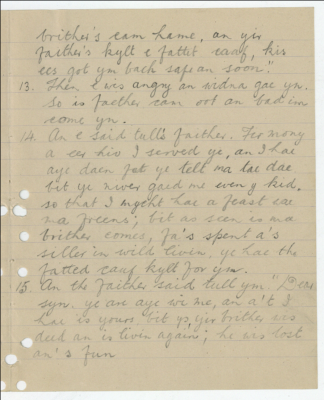 brither's cam hame, an yir
faither's kyllt e fattit cauf, kis
ees got ym bach safe an soon."
13. Then e wis angry an widna gae yn.
So is faether cam oot an bad im
come yn.
14. An e said tull's faither. Fer mony
a eer hiv I served ye, an I hae
aye daen fat ye tell ma tae dae
bit ye niver gaed me even a kid,
so that I mycht hae a feast wae
ma freens; bit as seen is ma
brither comes, fa's spent a's
siller in wild livin, ye hae the
fatted cauf kyllt for ym.
15. An the faither said tull ym. "Dear
syn. ye are aye wi me, an a't I
hae is yours bit yir brither wis
deid an is livin again; he wis lost
an's fun